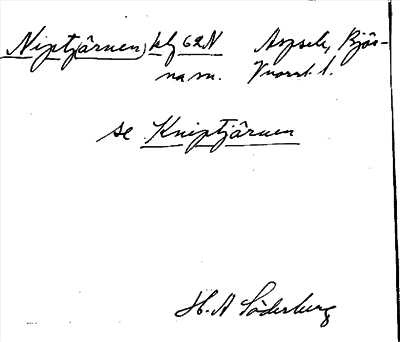 Niptjärnen, blz 62N Aspsele, Björ-
na sn. Vnorrl. l.
se Kniptjärnen
H. A Söderberg